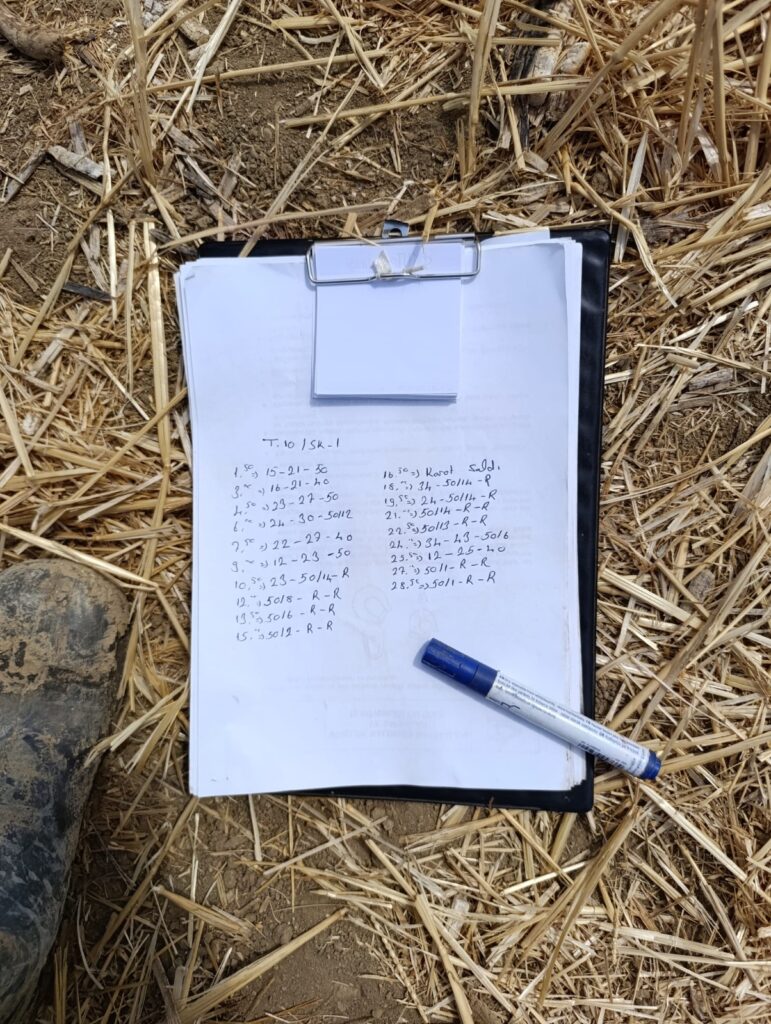 T.10 / SK-1
1.50 => 15-21-50
3.00 => 16-21-40
4.50 => 23-27-50
6.00 => 24-30-50/12
7.50 => 22-27-40
9.00 => 12-23-50
10.50 => 23-50/14-R
12.00 => 50/8-R-R
13.50 => 50/6-R-R
15.00 => 50/2-R-R
16.50 => Karot Saldı
18.00 => 34-50/14-R
19.50 => 24-50/14-R
21.00 => 50/14-R-R
22.50 => 50/13-R-R
24.00 => 34-43-50/6
25.50 => 12-25-40
27.00 => 50/1-R-R
28.50 => 50/1-R-R